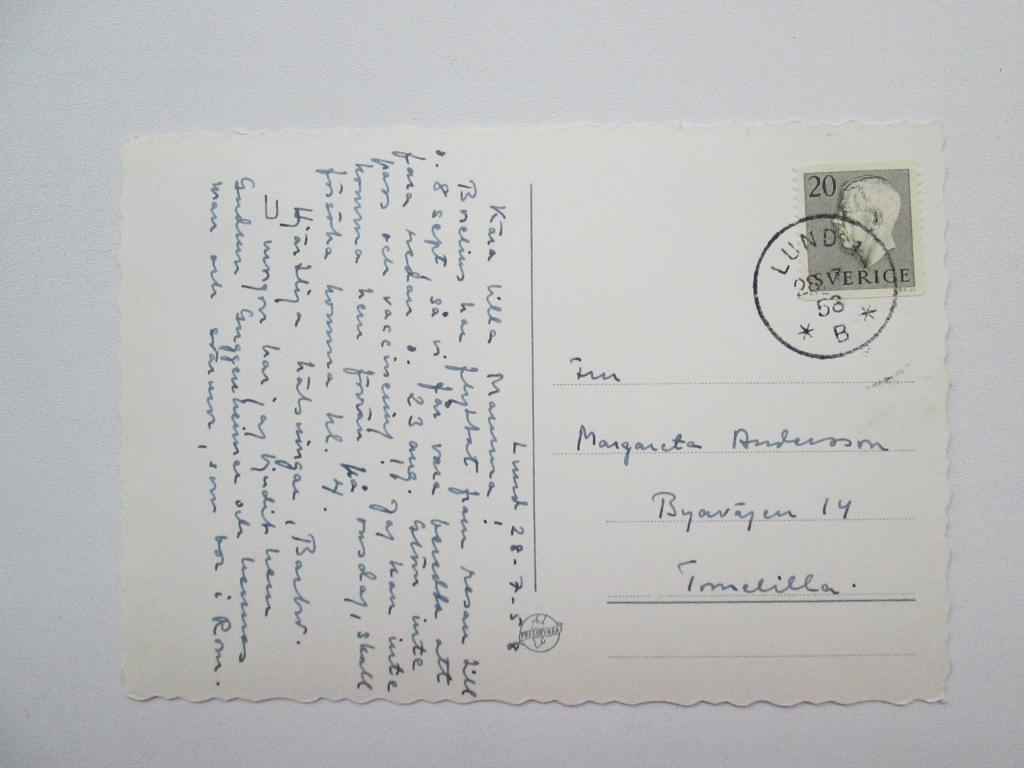 Lund 28-7-58
Kära lilla Mamma!
Borelius har flyttat fram resan till
d. 8 sept så vi får vara beredda att
fara redan d. 23 aug. Glöm inte
pass och vaccinering! Jag kan inte
komma hem förrän på onsdag, skall
försöka komma kl. 4.
Hjärtliga hälsningar,
I morgon har jag bjudit hem
Gudrun Guggenheimer och hennes
man och svärmor, som bor i Rom.
20
SVERIGE
LUND 1
28 7
58
* B *
Fru
Margareta Andersson
Byavägen 14
Tomelilla.
PRESSBYRÅN